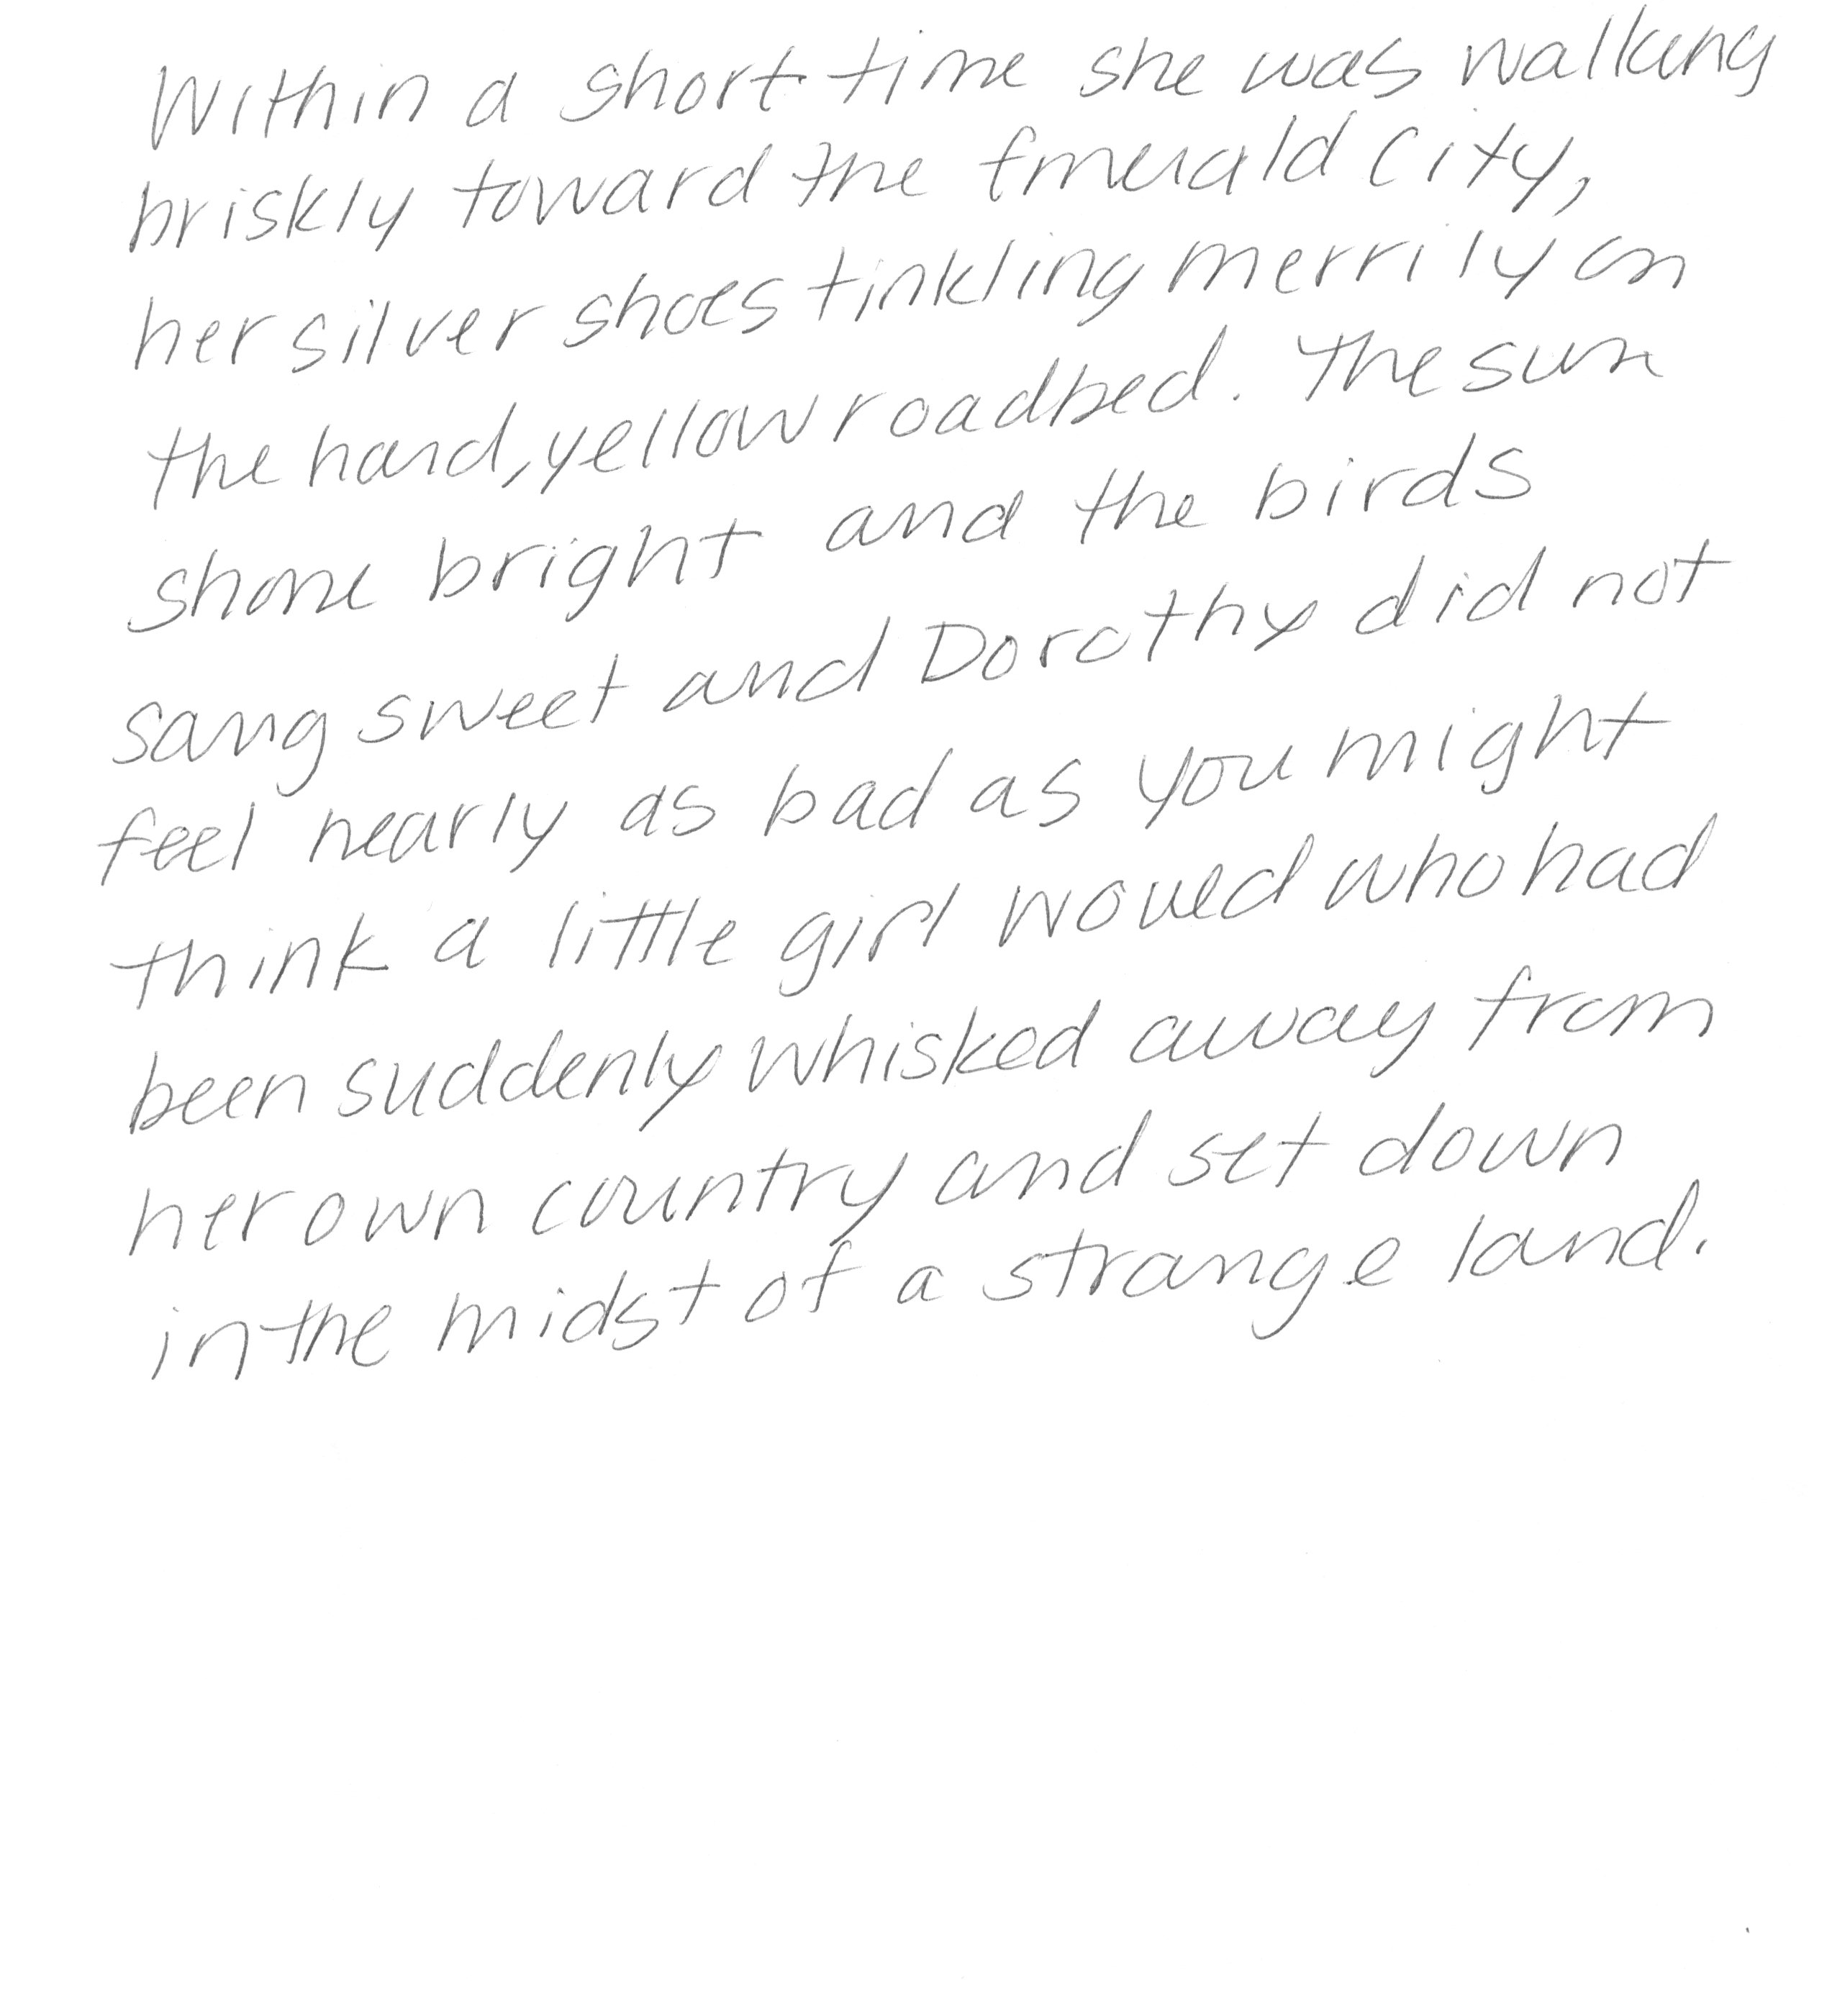 Within a short time she was walking
briskly toward the Emerald City,
her silver shoes tinkling merrily on
the hard, yellow roadbed. The sun
shone bright and the birds
sang sweet and Dorothy did not
feel nearly as bad as you might
think a little girl would who had
been suddenly whisked away from
her own country and set down
in the midst of a strange land.